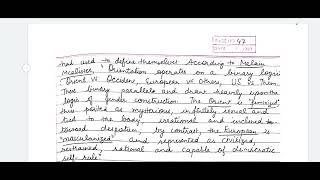 had used to define themselves. According to Melain
McAlister, "Orientation operates on a binary logic
Orient V. Occident, European v. Others, US v. Them.
These binary parallels and draws heavily upon the
logic of gender construction. The Orient is "feminized",
thus posited as mysterious, infinitely sensual and
tied to the body, irrational and inclined to
toward despotism, by contrast, the European is
"masculinized" and represented as civilized,
restrained, rational and capable of democratic
self-rule".